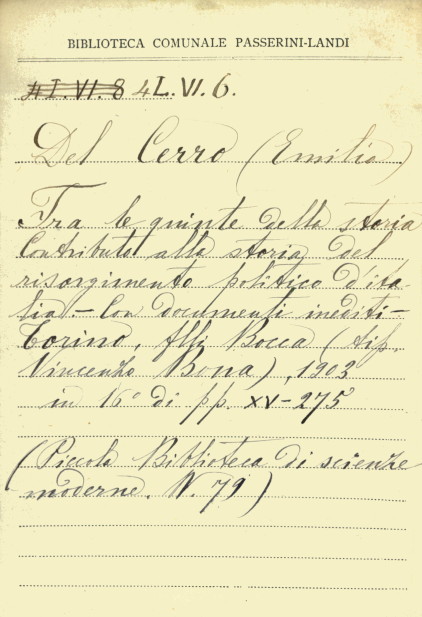 BIBLIOTECA COMUNALE PASSERINI-LANDI
4 I. VI. 8 4L. VI. 6.
Del Cerro (Emilio)
Tra le quinte della storia
Contributo alla storia del
risorgimento politico d'ita-
lia. - Con documenti inediti -
Torino, flli Bocca (tip.
Vincenzo Bona), 1903
in 16° di pp. XV-275
(Piccola Biblioteca di scienze
moderne. N. 79)